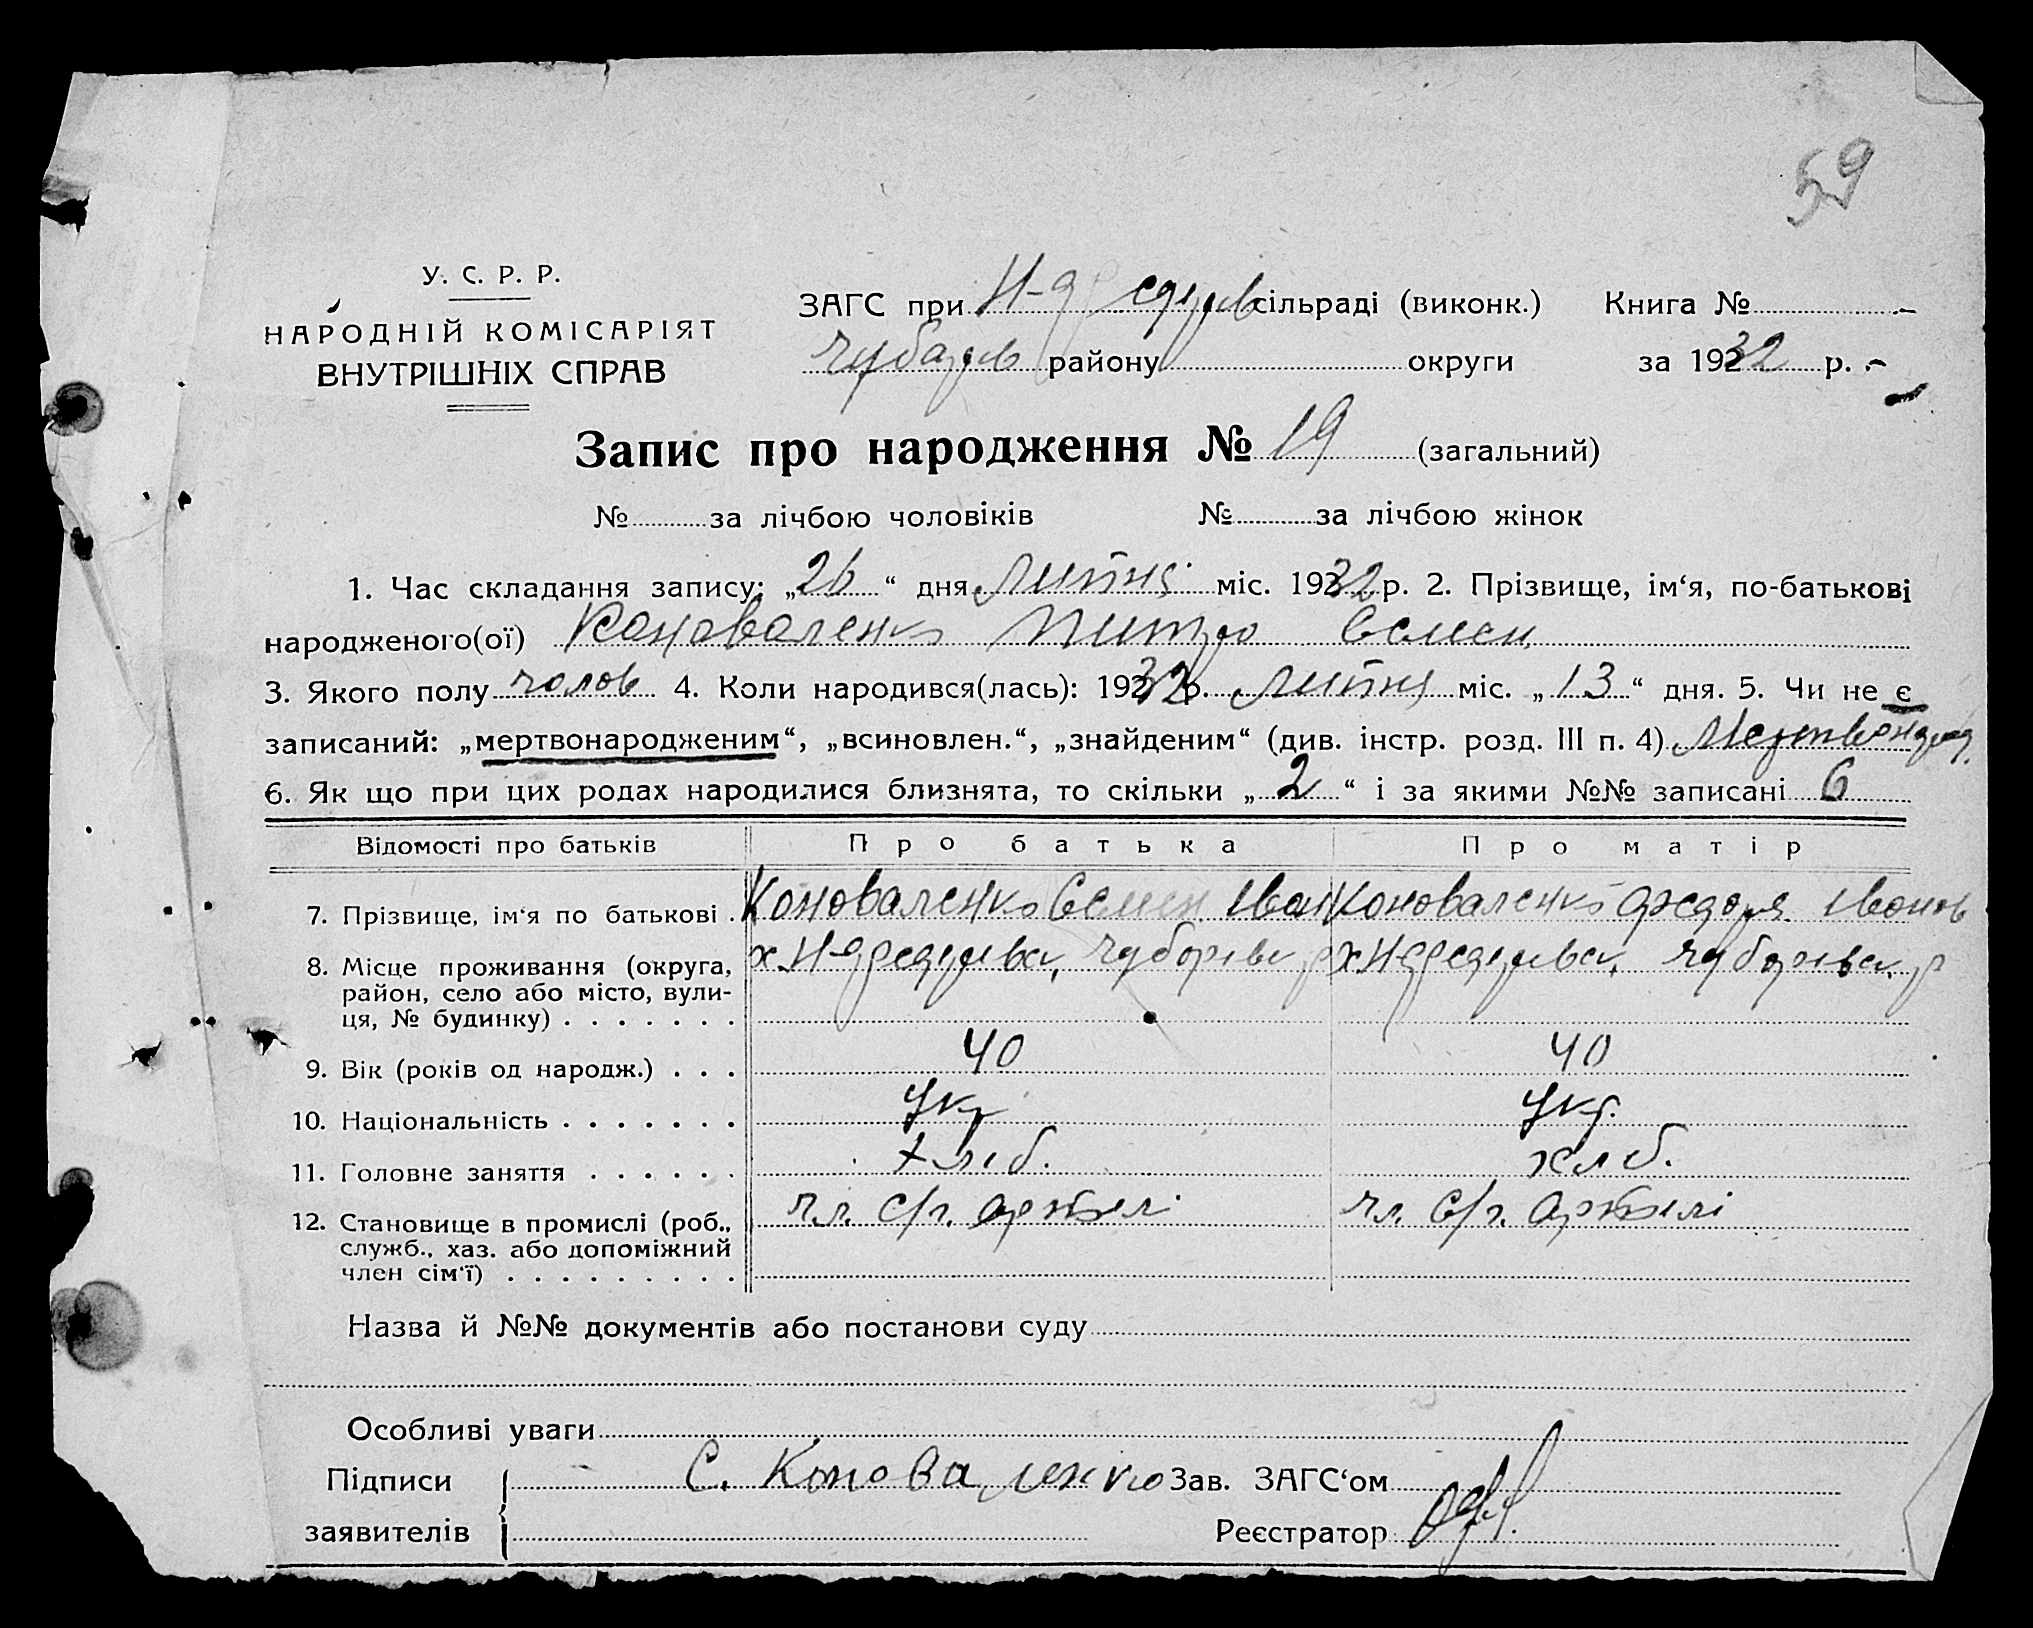 59
У. С. Р. Р.
НАРОДНІЙ КОМІСАРІЯТ
ВНУТРІШНІХ СПРАВ
ЗАГС при сільраді (виконк.) Книга №
району округи за 1932 р.
Запис про народження № 19 (загальний)
№ за лічбою чоловіків № за лічбою жінок
1. Час складання запису: „26“ дня Липня міс. 1932 р. 2. Прізвище, ім‘я, по-батькові
народженого(ої) Коноваленко Семен
3. Якого полу чолов 4. Коли народився(лась): 1932 р. Липня міс. „13“ дня. 5. Чи не є
записаний: „мертвонародженим“, „всиновлен.“, „знайденим“ (див. інстр. розд. III п. 4)
6. Як що при цих родах народилися близнята, то скільки „2“ і за якими №№ записані 6
Відомості про батьків Про батька Про матір
7. Прізвище, ім‘я по батькові . Коноваленко Семен Іван Коноваленко Іванов
8. Місце проживання (округа,
район, село або місто, вули-
ця, № будинку) . . . . . . .
9. Вік (років од народж.) . . . 40 40
10. Національність . . . . . . . Укр Укр.
11. Головне заняття . . . . . . Хліб. хліб.
12. Становище в промислі (роб., чл. с/г. артелі чл. с/г. артелі
служб., хаз. або допоміжний
член сім‘ї) . . . . . . . . .
Назва й №№ документів або постанови суду
Особливі уваги
Підписи С. Коноваленко Зав. ЗАГС‘ом
заявителів Реєстратор